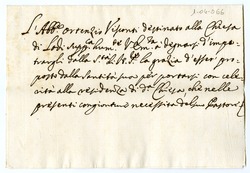 1-04-066
L'Abb.e Ortenzio Visconti destinato alla Chiesa
di Lodi supp.ca hum.te V. Em.za a degnarsi d'impe-
trargli dalla S.tà di N. S.re la grazia d'esser pro-
posto dalla Santità sua per portarsi con cele-
rità alla residenza di d.a Chiesa, che nelle
presenti congionture necessita del suo Pastore